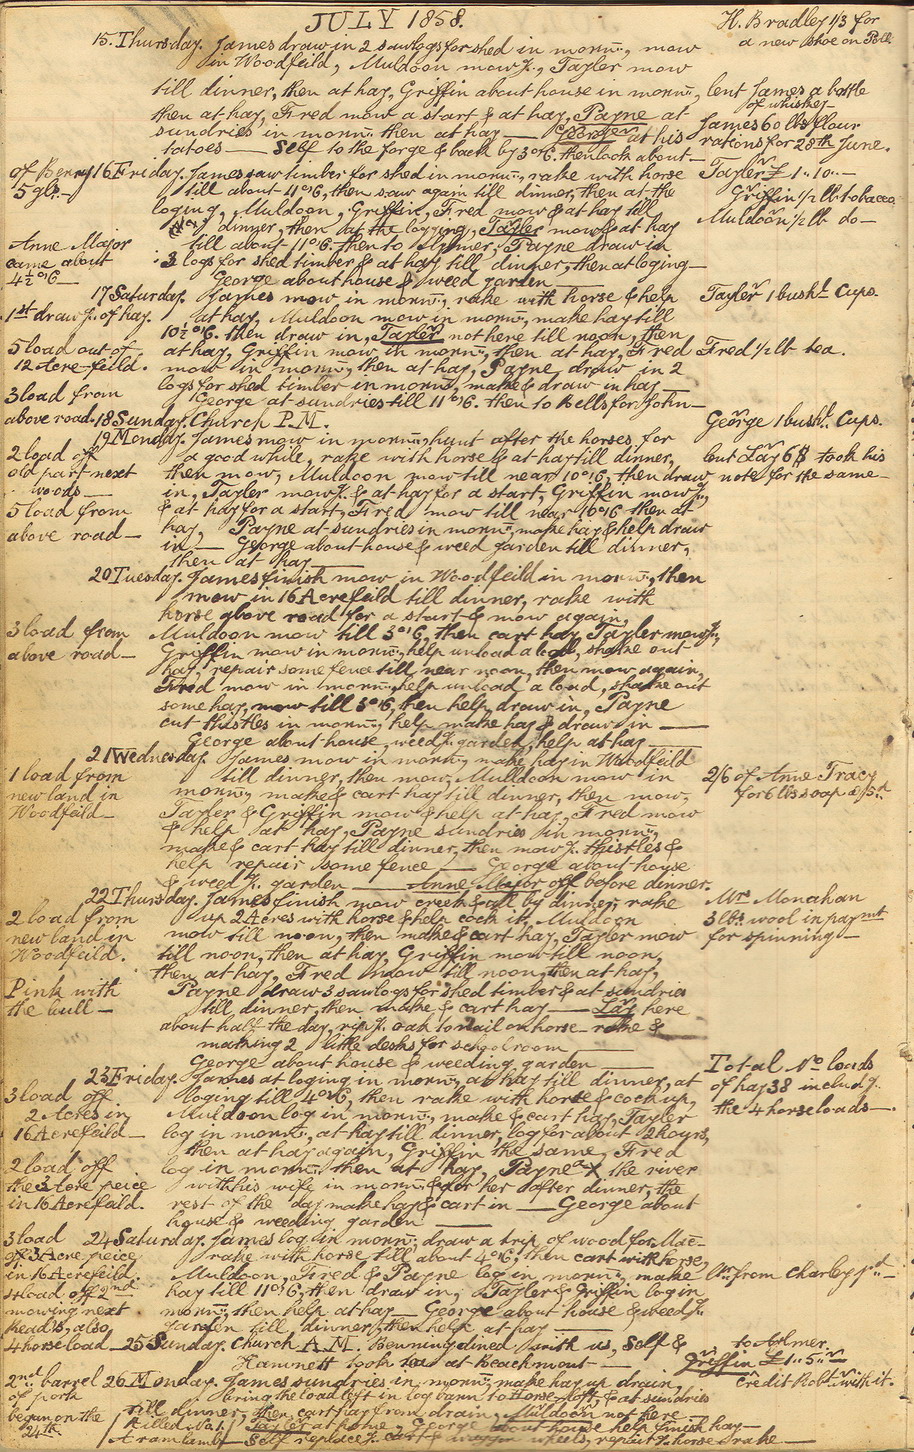 JULY 1858.
H. Bradley 1/3 for
a new shoe on Poll
15. Thursday. James draw in 2 sawlogs for shed in morng, mow
in Woodfeild, Muldoon mow g., Tayler mow
till dinner, then at hay, Griffin about house in morng,
lent James a bottle
of whiskey
then at hay, Fred mow a start & at hay, Payne at
James 60 lbs flour
sundries in morng then at hay — at his
rations for 28th June.
tatoes — Self to the forge & back by 3 o'c. then look about —
of Benny
5 gls —
16 Friday. James saw timber for shed in morng, rake with horse
Tayler £ 1 " 10 " —
till about 4 o'c, then saw again till dinner, then at the
Griffin 1/2 lb tobacco
loging, Muldoon, Griffin, Fred mow & at hay till
Muldoon 1/2 lb do —
dinner, then at the loging, Tayler mow & at hay
Anne Major
came about
4 1/2 o'c —
till about 11 o'c. then to Aylmer, Payne draw in
3 logs for shed timber & at hay till dinner, then at loging —
George about house & weed garden
17 Saturday. James mow in morng, rake with horse & help
Tayler 1 bushl Cups.
1st draw g. of hay.
at hay, Muldoon mow in morng, make hay till
10 1/2 o'c. then draw in, Tayler not here till noon, then
5 load out of
12 Acre-feild.
at hay, Griffin mow in morng, then at hay, Fred
Fred 1/2 lb tea.
mow in morng, then at hay, Payne draw in 2
3 load from
above road.
logs for shed timber in morng, make & draw in hay —
George at sundries till 11 o'c. then to Bells for John —
18 Sunday. Church P.M.
George 1 bushl Cups.
19 Monday. James mow in morng, hunt after the horses for
2 load off
old part next
woods —
a good while, rake with horse & at hay till dinner,
lent Lay 6$ took his
then mow, Muldoon mow till near 10 o'c, then draw
note for the same —
in, Tayler mow g. & at hay for a start, Griffin mow g.
5 load from
above road —
& at hay for a start, Fred mow till near 10 o'c then at
hay, Payne at sundries in morng, make hay & help draw
in — George about house & weed garden till dinner,
then at hay —
20 Tuesday. James finish mow in Woodfeild in morng, then
mow in 16 Acrefeild till dinner, rake with
horse above road for a start & mow again,
3 load from
above road —
Muldoon mow till 3 o'c, then cart hay, Tayler mow g.,
Griffin mow in morng, help unload a load, shake out
hay, repair some fence till near noon, then mow again,
Fred mow in morng, help unload a load, shake out
some hay, mow till 3 o'c, then help draw in, Payne
cut thistles in morng, help make hay & draw in —
George about house, weed g. garden, help at hay —
21 Wednesday. James mow in morng, make hay in Woodfeild
1 load from
new land in
Woodfeild —
till dinner, then mow, Muldoon mow in
2/6 of Anne Tracy
for 6 lbs soap @ 5d.
morng, make & cart hay till dinner, then mow,
Tayler & Griffin mow & help at hay, Fred mow
& help at hay, Payne sundries in morng,
make & cart hay till dinner, then mow g. thistles &
help repair some fence — George about house
& weed g. garden — Anne Major off before dinner.
22 Thursday. James finish mow creek & all by dinner, rake
Mrs Monahan
3 lbs wool in paymt
for spinning —
2 load from
new land in
Woodfeild.
up 2 Acres with horse & help cock it, Muldoon
mow till noon, then make & cart hay, Tayler mow
till noon, then at hay, Griffin mow till noon,
then at hay, Fred mow till noon, then at hay,
Pink with
the bull —
Payne draw 3 sawlogs for shed timber & at sundries
till dinner, then make & cart hay — Lay here
about half the day, rip g. oak to nail on horse-rake &
making 2 little desks for schoolroom
George about house & weeding garden —
Total No loads
of hay 38 includg.
the 4 horseloads —
23 Friday. James at loging in morng, at hay till dinner, at
3 load off
2 Acres in
16 Acrefeild —
loging till 4 o'c, then rake with horse & cock up,
Muldoon log in morng, make & cart hay, Tayler
log in morng, at hay till dinner, log for about 2 hours,
then at hay again, Griffin the same, Fred
2 load off
the 3 Acre peice
in 16 Acrefeild.
log in morng then at hay, Payne x the river
with his wife in morng & for her after dinner, the
rest of the day make hay & cart in — George about
house & weeding garden —
3 load
off 3 Acre peice
in 16 Acrefeild
24 Saturday. James log in morng, draw a trip of wood for Mac—
rake with horse till about 4 o'c, then cart with horse,
Muldoon, Fred & Payne log in morng, make
from Charley pd —
load off 2nd
mowing next
head's, also
4 horse load —
hay till 11 o'c, then draw in, Tayler & Griffin log in
morng, then help at hay — George about house & weed g.
garden till dinner, then help at hay —
25 Sunday. Church A.M. Benning dined with us, Self &
to Aylmer.
Hamnett took tea at Beachmont —
Griffin £ 1 " 5 " —
credit Robt. with it.
2nd barrel
of pork
begun on the
24th.
26 Monday. James sundries in morng, make hay up drain,
bring the load left in log barn to Horse-loft & at sundries
till dinner, then cart hay from drain, Muldoon not here
Killed No. 1
a ram lamb
Tayler at home, George about house help finish hay —
Self replace g. cart & waggon wheels, repair g. horse rake —